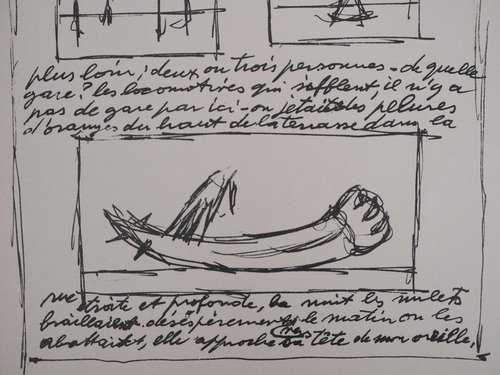 plus loin; deux ou trois personnes - de quelle
gare? les locomotives qui sifflent, il n'y a
pas de gare par ici - on jetait les pelures
d'oranges du haut de la terrasse dans la
rue étroite et profonde, la nuit les mulets
braillaient désespérément le matin on les
abattait, elle approche sa tête de mon oreille,